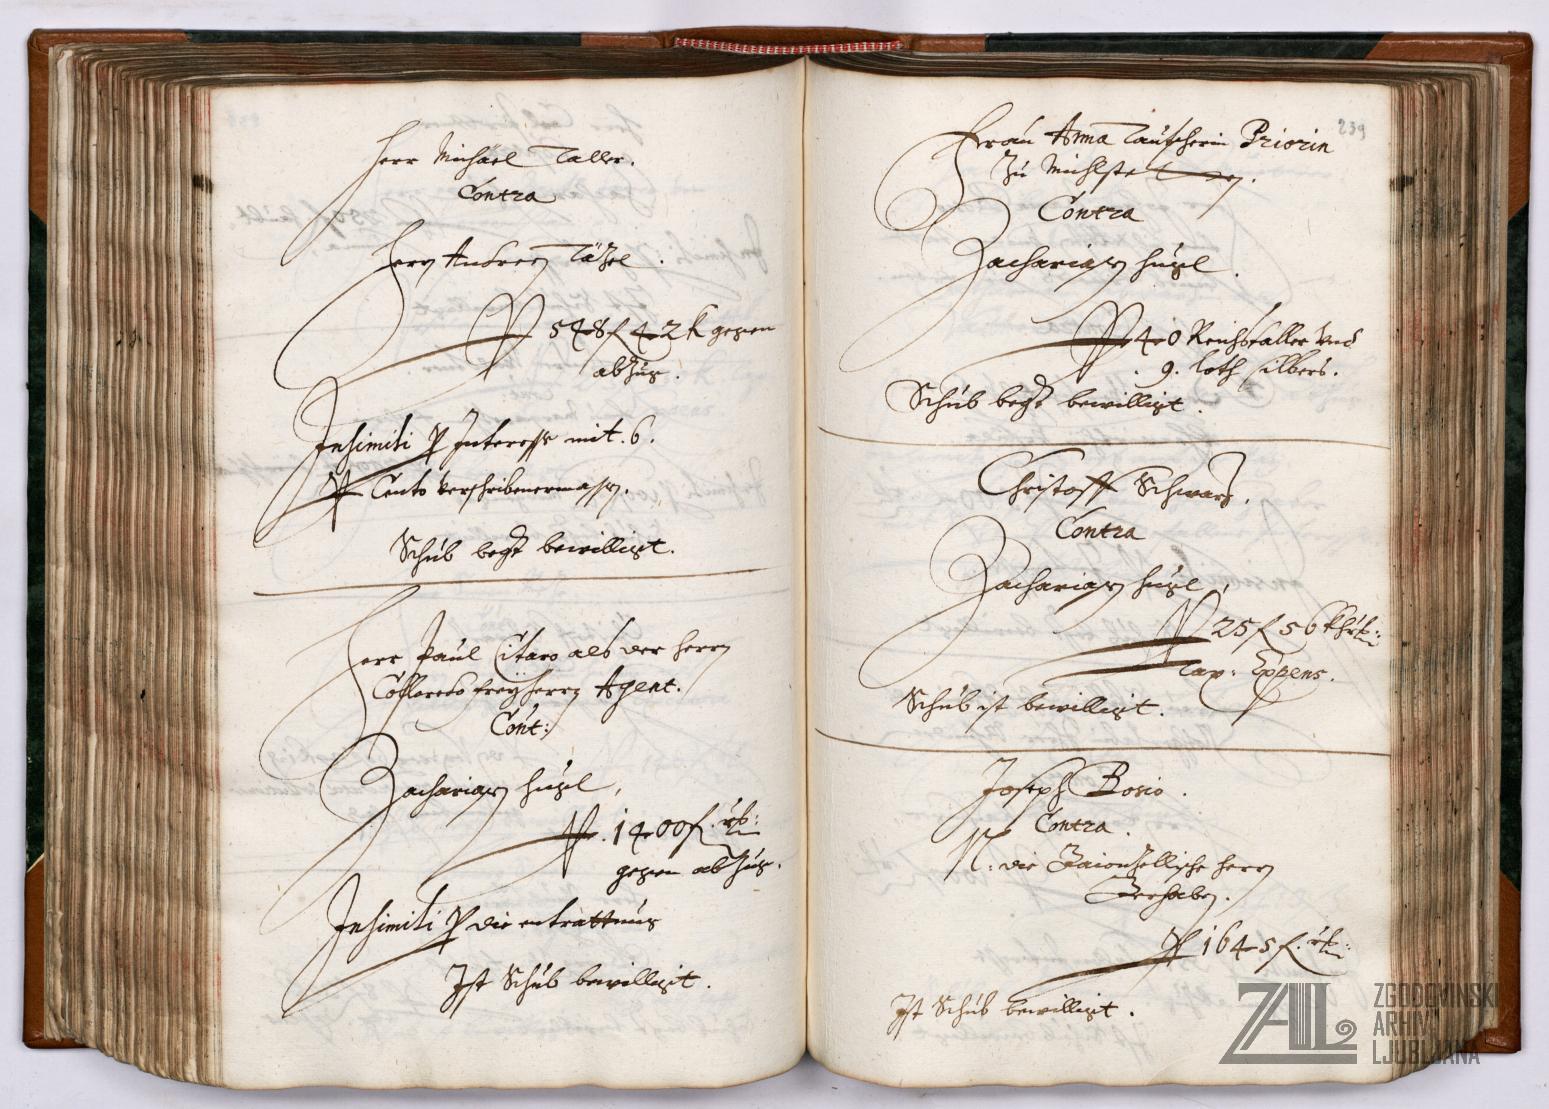 Herr Michäel Taller.
Contra
Herrn Andreen Täzel.
Pr 548 f 42 k gegen
abzug.
In simili pr Interesse mit .6.
pr Cento verschribenermassen.
Schub begt bewilligt.
Herr Paul Citaro als der Herrn
Colloredo freyherrn Agent.
Cont:
Zachariasen Hügel,
Pr. 1400 f. rh:
gegen abzug.
In simili pr die entrattung
Ist Schub bewilligt.
239
Frau Anna Tauscherin Priorin
Zu Michlstetten.
Contra
Zachariasen Hügel.
Pr 40 Reichstaller und
9. Loth silbers.
Schub begt bewilligt.
Christoff Schwarz.
Contra
Zachariasen Hügel,
Pr 25 f 56 kh rh:
Tax: Expens.
Schub ist bewilligt.
Joseph Bosio.
Contra.
N: die Herrn
Gerhaben.
Pr 1645 f. rh:
Ist Schub bewilligt.
ZAL ZGODOVINSKI
ARHIV
LJUBLJANA